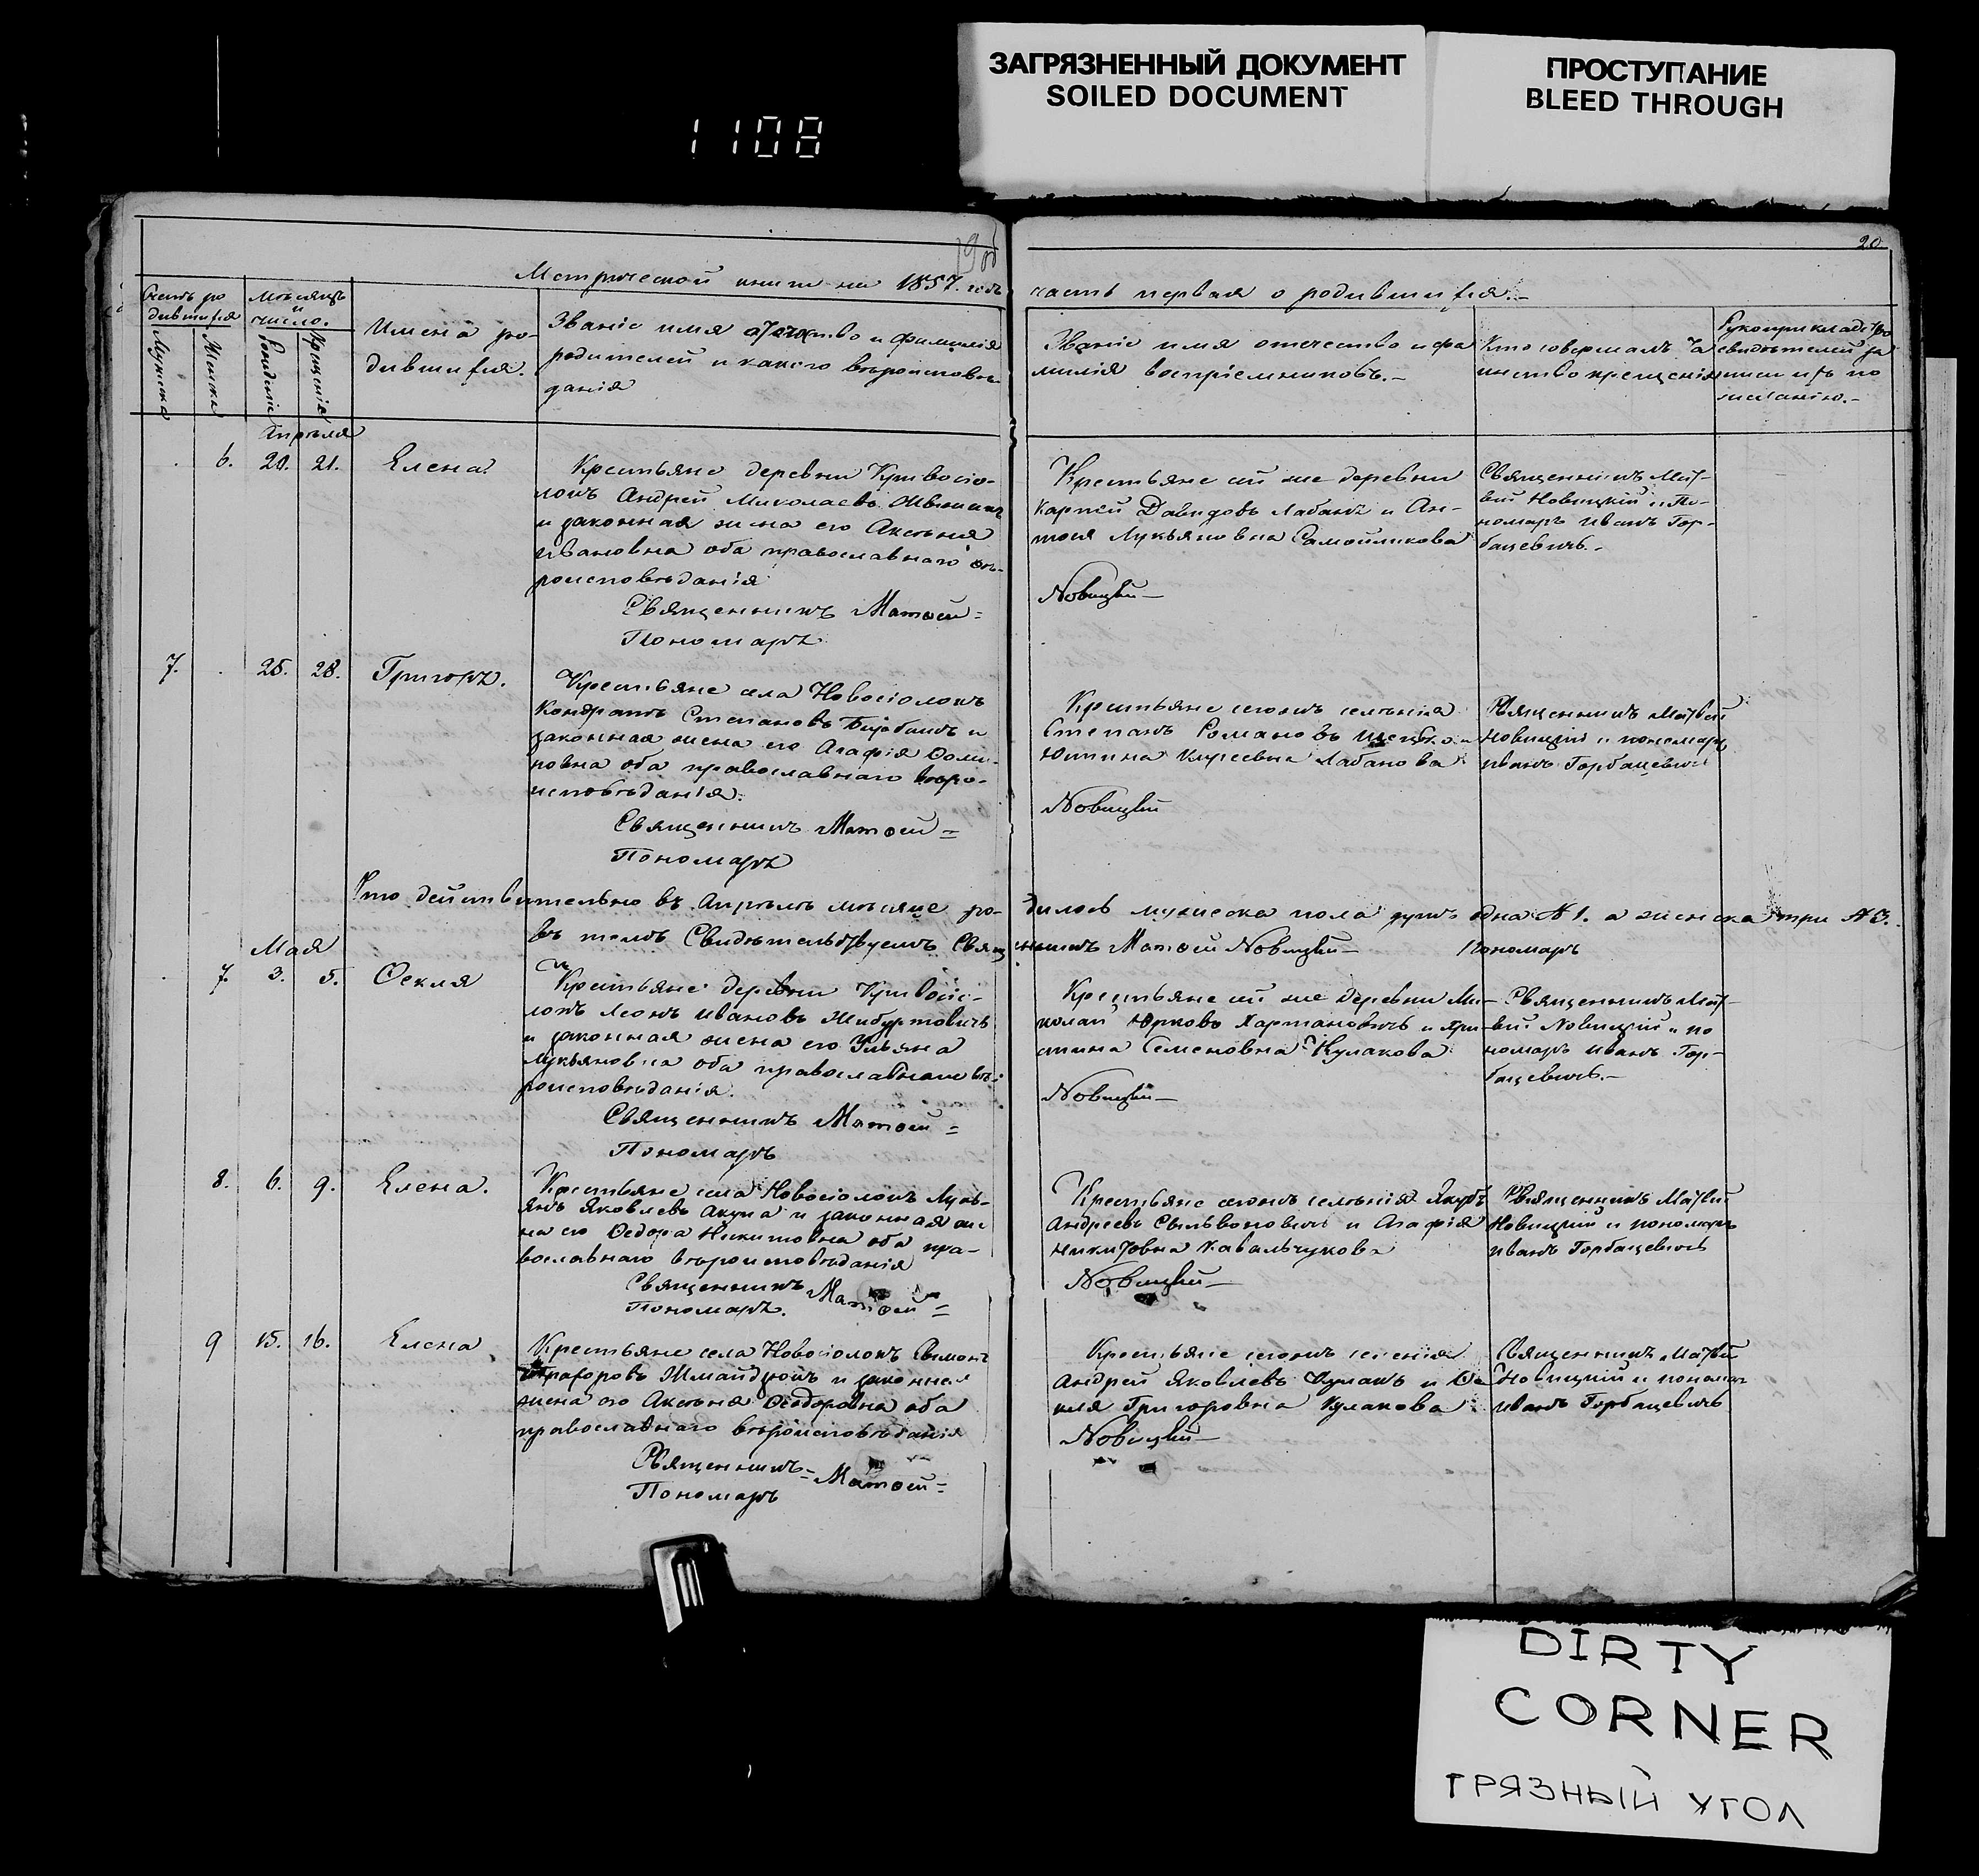 ЗАГРЯЗНЕННЫЙ ДОКУМЕНТ
SOILED DOCUMENT
ПРОСТУПАНИЕ
BLEED THROUGH
1108
19 об
20.
Метрической книги на 1857. годъ
часть первая о родившихся.-
Счетъ ро
дившихся
Мужеска
Женска
Мѣсяцъ
и
число.
Рожденіе
Крещеніе
Имена ро-
дившихся.
Званіе имя отечество и фамилія
родителей и какого вѣроисповѣ-
данія
Званіе имя отечество и фа
милія воспріемниковъ.-
Кто совершалъ та
инство крещенія
Рукоприкладство
свидѣтелей за
писи ихъ по
желанію.-
Апрѣля
6. 20. 21. Елена.
Крестьяне деревни Кривосіо-
локъ Андрей Миколаевъ
и законная жена его Аксенія
Ивановна оба православнаго вѣ-
роисповѣданія
Священникъ Матөей=
Пономарь
Крестьяне сій же деревни
Карпей Давидовъ Лабанъ и Ан-
толя Лукьяновна Самойликова
Новицкій—
Священникъ Мат-
вій Новицкій и По-
номарь Иванъ Гор-
бацевичъ.-
7. 25. 28. Григорь.
Крестьяне села Новосіолокъ
Кондратъ Степановъ и
законная жена его Агафія
оба православнаго вѣро-
исповѣданія.
Священникъ Матөей=
Пономарь
Крестьяне сегожъ селенія
Степанъ Романовъ и
Юстина Лабанова
Новицкій
Священникъ Матвей
Новицкій и пономарь
Иванъ Горбацевичъ
Что действительно въ Апрѣлѣ мѣсяце ро-
дилось мужеска пола душъ одна № 1. а женска три № 3.
въ томъ Свидѣтельствуемъ Свящ
енникъ Матөей Новицкій— Пономарь
Мая
7. 3. 5. Өекля
Крестьяне деревни Кривосіо-
локъ Леонъ Ивановъ Жибуртовичъ
и законная жена его Ульяна
Лукьяновна оба православнаго вѣ-
роисповѣданія.
Священникъ Матөей=
Пономарь
Крестьяне сій же деревни Ми-
колай Юрковъ Хартановичъ и Хри-
стина Семеновна Кулакова
Новицкій—
Священникъ Мат-
вій Новицкій и по
номарь Иванъ Гор-
бацевичъ.-
8. 6. 9. Елена.
Крестьяне села Новосіолокъ Лукь-
янъ Яковлевъ Акула и законная же
на его Өедора Никитовна оба пра-
вославнаго вѣроисповѣданія
Священникъ Матөей=
Пономарь.
Крестьяне сегожъ селенія Якубъ
Андреевъ Сыльвоновичъ и Агафія
Никитовна Кавальчукова
Новицкій—
Священникъ Матвій
Новицкій и пономарь
Иванъ Горбацевичъ
9 15. 16. Елена
Крестьяне села Новосіолокъ Сымонъ
Жмайдзюкъ и законная
жена его Аксенія Өеодоровна оба
православнаго вѣроисповѣданія
Священникъ= Матөей=
Пономарь
Крестьяне сегожъ селенія
Андрей Яковлевъ Кулакъ и Өе-
кля Григоровна Кулакова
Новицкій—
Священникъ Матвій
Новицкій и пономарь
Иванъ Горбацевичъ
DIRTY
CORNER
ГРЯЗНЫЙ УГОЛ